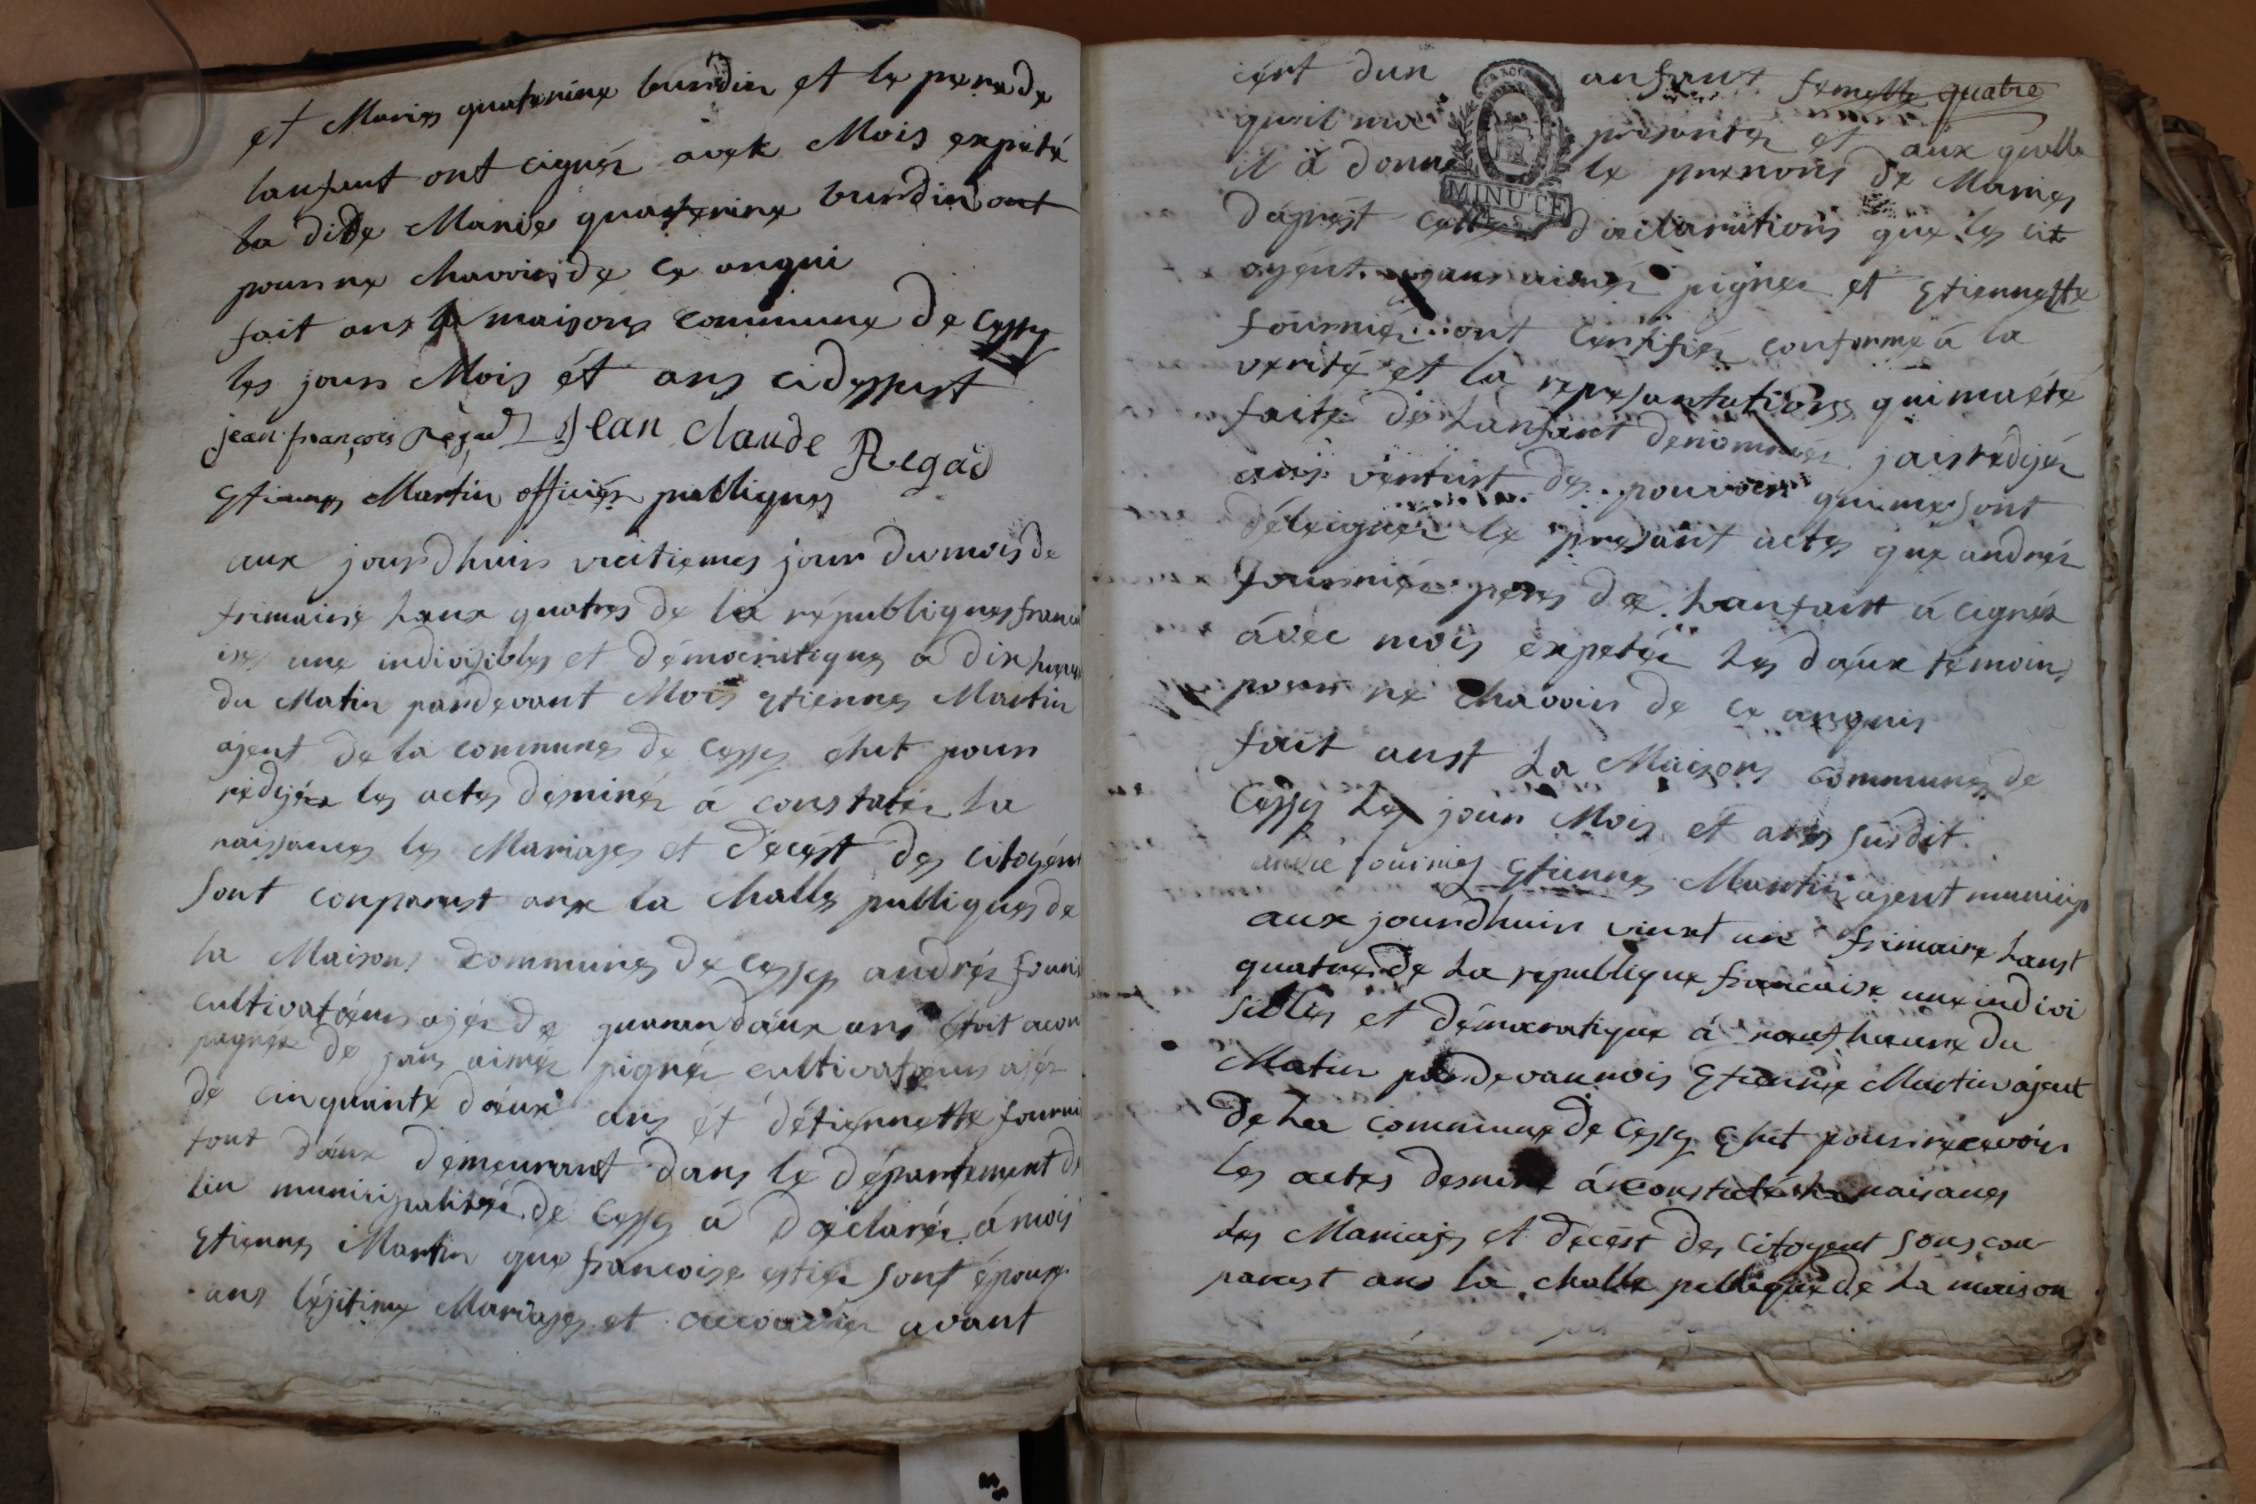 et Maries quaterine burdin et le pere de
lanfant ont cignér avek Mois expeté
la ditte Marie quaterine burdin ont
pour ne chavoirs de ce anqui
fait ans la maisons commune de Cessy
les jours Mois ét ans cidessust
jean françois Régad Jean Claude Regad
Etiennes Martin officiér publiques
aux jourdhuin vicitiemes jour du mois de
frimaire Laux quatres de la républiques franca
ises une indivisibles et démocratique a dix heure
du Matin pardevant Mois Etiennes Martin
ajent de la communes de Cessy élut pour
rédijér les actes desninér á constatér La
naissances les Mariajes et décést des citoyént
sont comparust anx la challes publiques de
la Maisons communes de Cessy andrés fourni
cultivatéurs ajér de quaran daux ans étoit acom
pagnér de jans aimér pignér cultivatéurs ajér
de cinquante daux ans et détiennette fourni
tout daux démeurant dans le département de
lin municipalitée de Cessy á daclarér á mois
Etiennes Martin que francoise estier sont épouse
ans léjitime Mariajes et acouchér avant
iért dun anfant femelle quatre
quil me présenter et aux quelle
il á donné le prenons de Maries
dáprést cette daclarations que les cit
oyent jans aimér pignér et Etiennette
fourniér ont certifiér conforme á la
verité et la represantations qui ma été
faite de Lanfant dénommér jais rédijér
ans vertust des pouvoirs qui me sont
déléignér le présant actes que andrér
fourniér peres de Lanfant á cignér
ávéc mois expetée Les daux témoins
pour ne chavoir de ce anquis
fait anst La Maisons communes de
Cessy Les jour Mois et ans susdit
andré fournier Etiennes Martin ajent municip
aux jourdhuin vinxt un frimaire Lanst
quatre de La republique francaise une indivi
sibles et démocratique á neuf heure du
Matin pardevan mois Etienne Martin ajent
de La commune de Cessy Elut pour recevoir
les actes desniné á constaté La naisances
Les Mariajes et décést des citoyent sons com
parust ans la challe publique de La maison
MINUTE